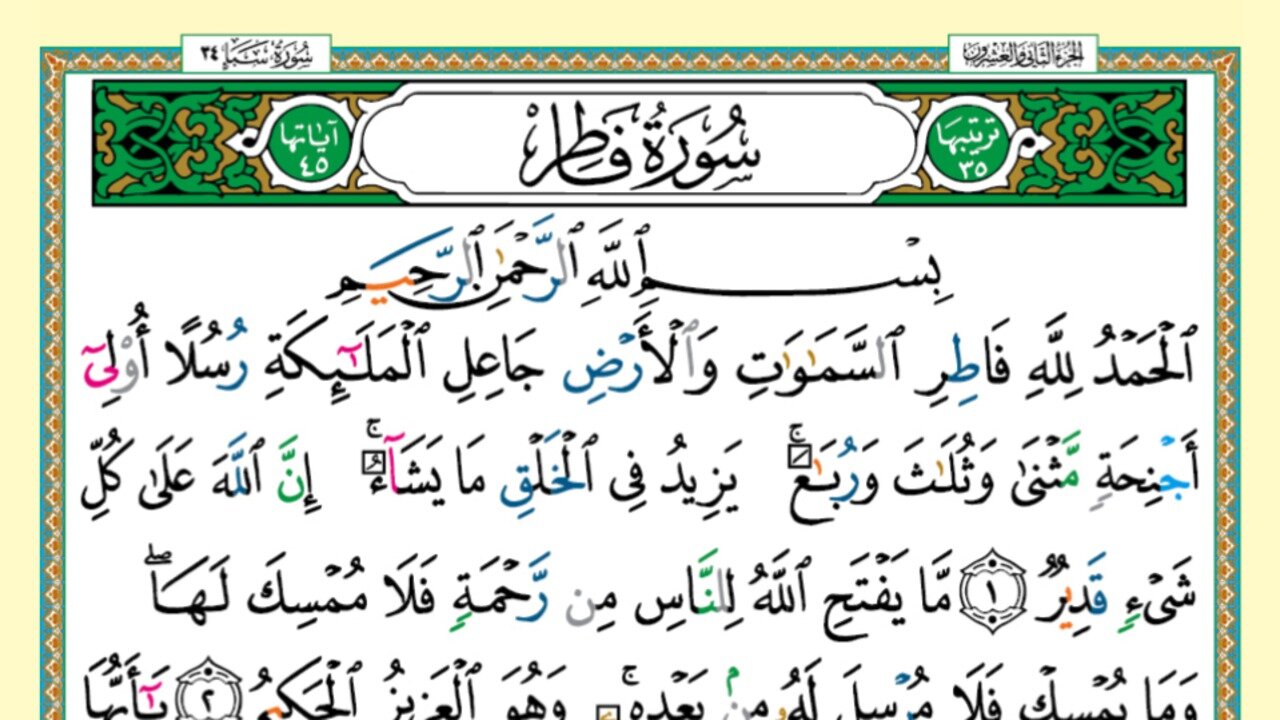 الجزء الثاني والعشرون
سُورَةُ سَبَإٍ ٣٤
ترتيبها ٣٥
سُورَةُ فَاطِرٍ
آياتها ٤٥
بِسْمِ ٱللَّهِ ٱلرَّحْمَٰنِ ٱلرَّحِيمِ
ٱلْحَمْدُ لِلَّهِ فَاطِرِ ٱلسَّمَٰوَٰتِ وَٱلْأَرْضِ جَاعِلِ ٱلْمَلَٰٓئِكَةِ رُسُلًا أُو۟لِىٓ
أَجْنِحَةٍ مَّثْنَىٰ وَثُلَٰثَ وَرُبَٰعَ ۚ يَزِيدُ فِى ٱلْخَلْقِ مَا يَشَآءُ ۚ إِنَّ ٱللَّهَ عَلَىٰ كُلِّ
شَىْءٍ قَدِيرٌ ١ مَّا يَفْتَحِ ٱللَّهُ لِلنَّاسِ مِن رَّحْمَةٍ فَلَا مُمْسِكَ لَهَا ۖ
وَمَا يُمْسِكْ فَلَا مُرْسِلَ لَهُۥ مِنۢ بَعْدِهِۦ ۚ وَهُوَ ٱلْعَزِيزُ ٱلْحَكِيمُ ٢ يَٰٓأَيُّهَا